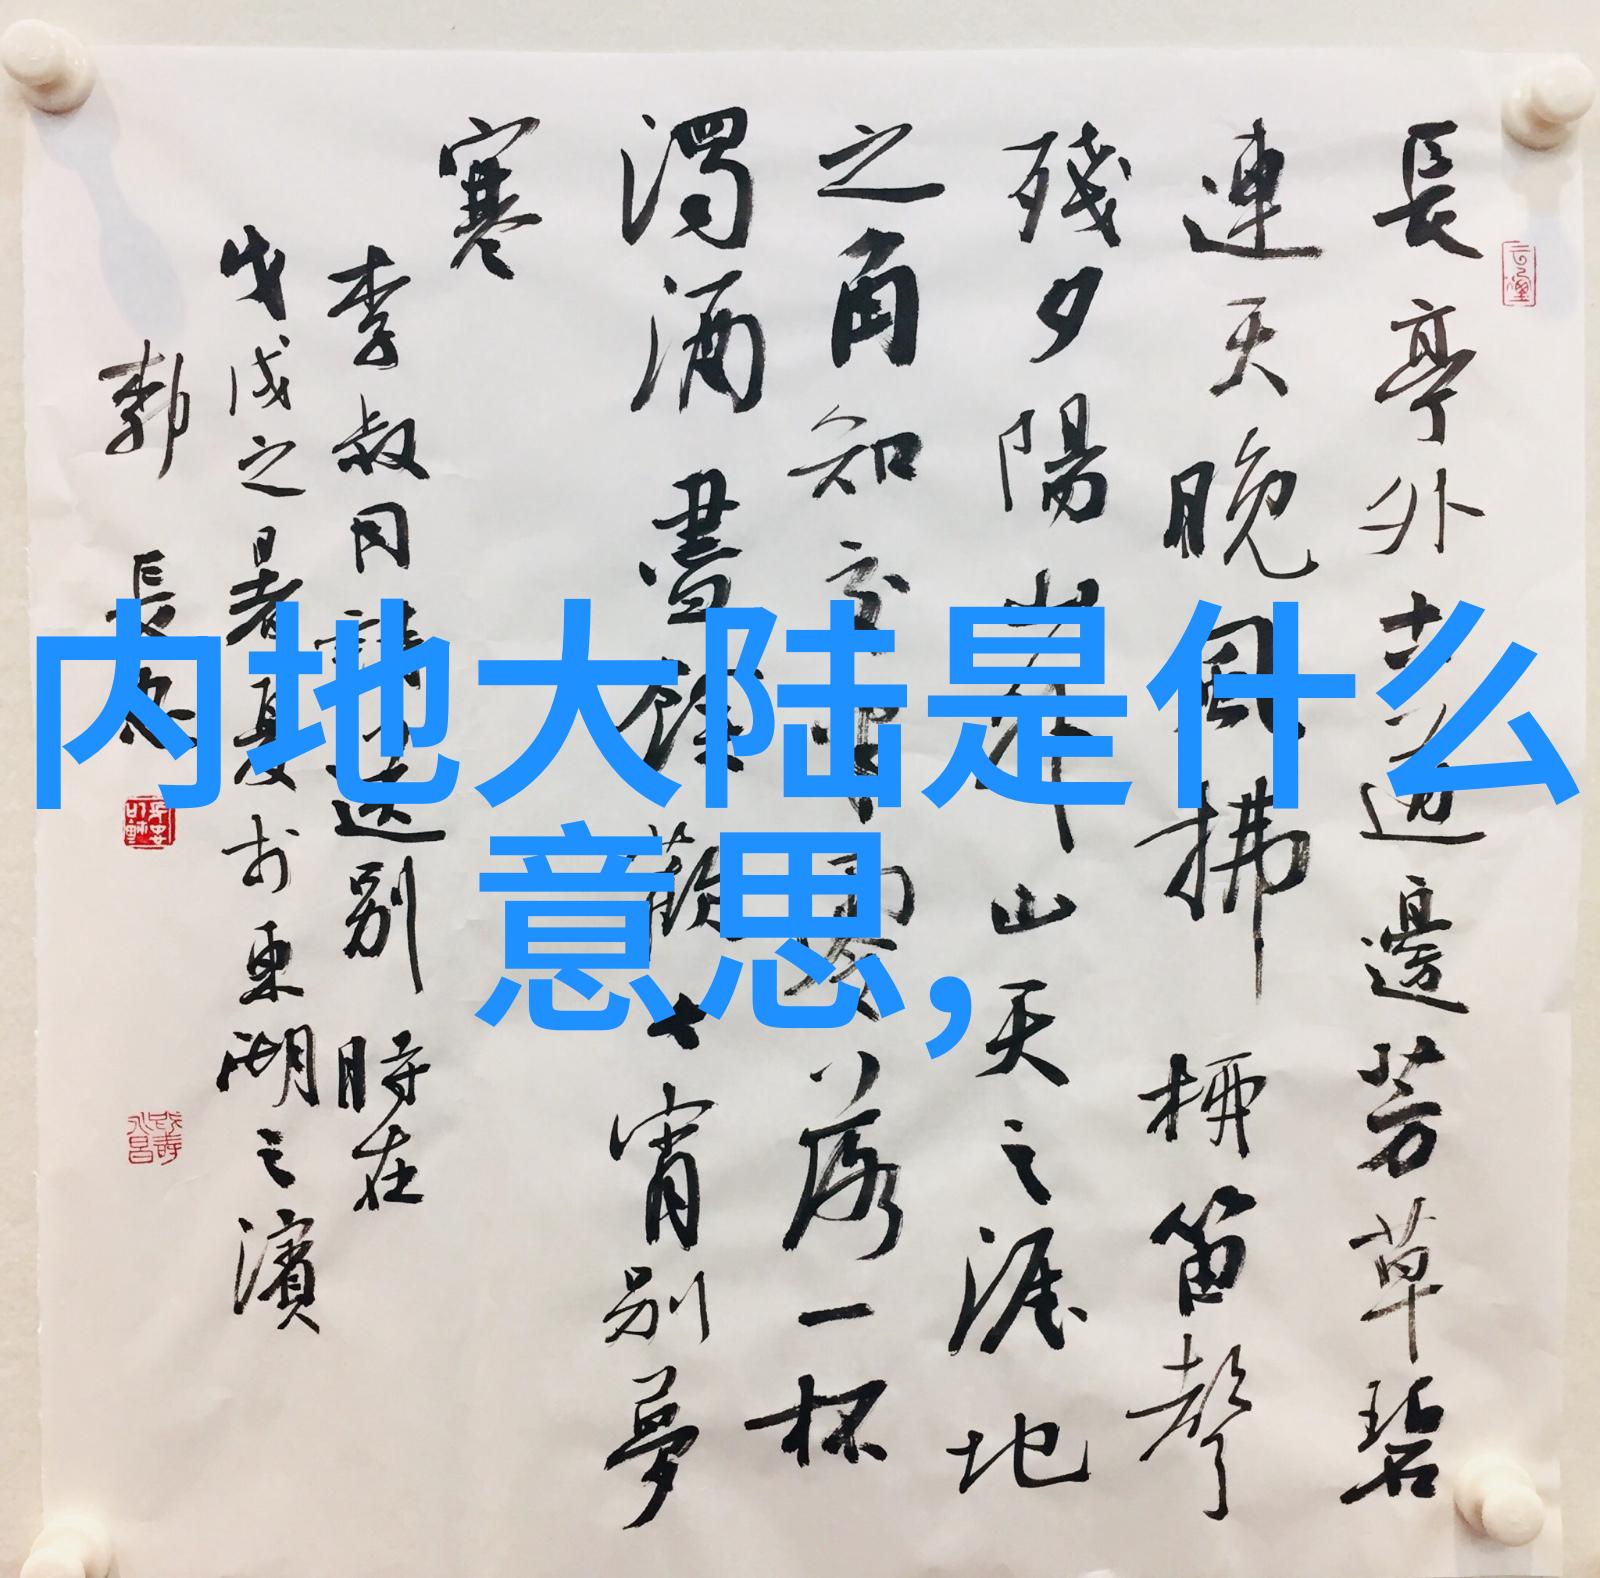 內地大陆是什么
意思,
長亭外古道邊芳草碧
連天晚風拂柳笛聲
殘夕陽山外山天之涯地
之角知交半零落一杯
濁酒盡餘歡今宵別夢
寒
李叔同詩送別 時在
戊戌之暑夏於東湖之濱
長